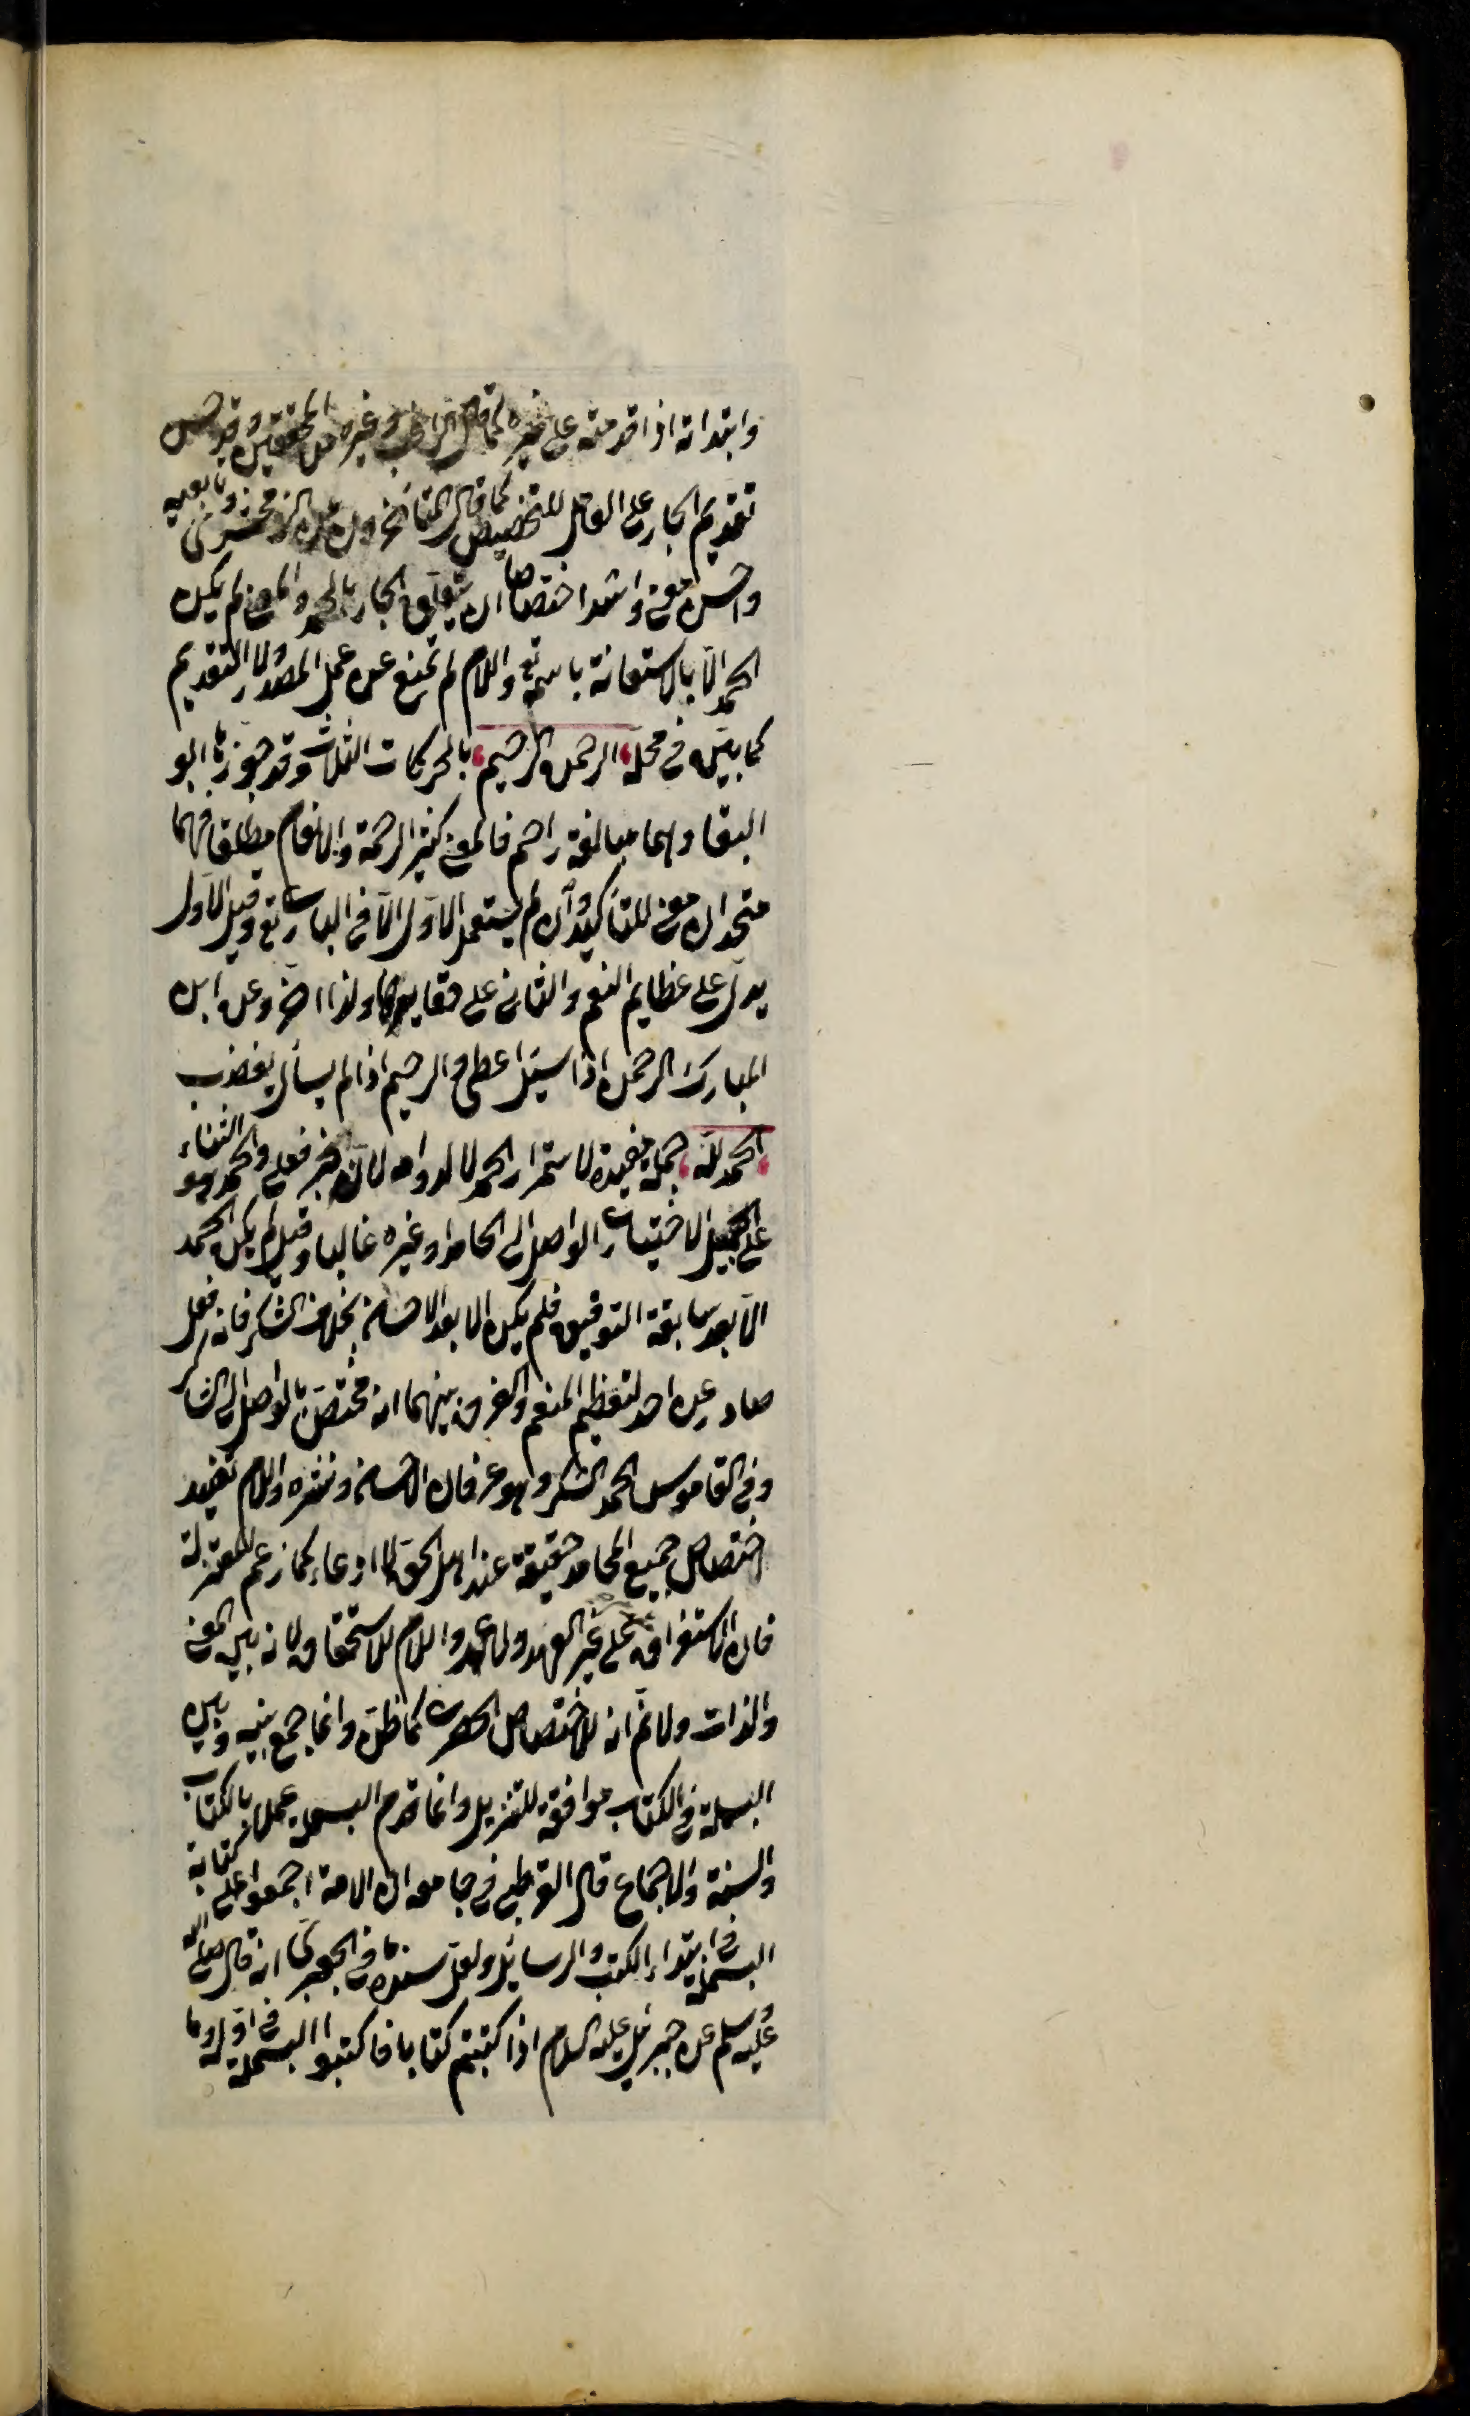 وابتداته اذا قدمته على غيره كما قال الراغب وغيره من المحققين وقد حسن
تقديم الجار على العامل للتخصيص كما قال التفتازاني الزمخشري وتابعيه
واحسن معنى واشد اختصاصا ان يتعلق الجار بالحمد والمعنى لم يكن
الحمد الا بالاستعانة باسمه تع واللام لم تمنع عن عمل المصدر لا التقديم
كما بين في محله الرحمن الرحيم بالحركات الثلاث وقد جوزها ابو
البقا وهما مبالغة راحم فالمعنى كثير الرحمة والانعام مطلقا فهما
متحدان معنى للتأكيد وان لم يستعمل الاول الا في الباري تع وقيل الاول
يدل على عظايم النعم والثاني على دقايقها ولذا اخر وعن ابن
المبارك الرحمن اذا سيل اعطى والرحيم اذا لم يسأل يغضب
الحمد لله جملة مفيدة لاستمرار الحمد لا لدوامه لان خبر فعلي والحمد هو الثناء
على الجميل الاختياري الواصل الى الحامد او غيره غالبا وقيل لم يكن الحمد
الا بعد سابقة التوفيق فلم يكن الا بعد الاحسان بخلاف الشكر فانه فعل
صادر عن احد لتعظيم المنعم والفرق بينهما انه مختص بالواصل الى الشاكر
وفي القاموس الحمد الشكر وهو عرفان الاحسان ونشره واللام تفيد
اختصاص جميع المحامد حقيقة عند اهل الحق لا ادعاء كما زعم المعتزلة
فان الاستغراق على غير العهد ولا عهد واللام للاستحقاق لانه بين المعنى
والذات ولا ثم انه للاختصاص الحصري كما ظن وانما جمع بينه وبين
البسملة في الكتاب موافقة للتنزيل وانما قدم البسملة عملا بالكتاب
والسنة والاجماع قال القرطبي في جامعه ان الامة اجمعوا على كتابة
البسملة في ابتداء الكتب والرسايل ولعل سندها في الجعبري انه قال صلى الله
عليه وسلم عن جبرئيل عليه السلام اذا كتبتم كتابا فاكتبوا البسملة في اوله وما